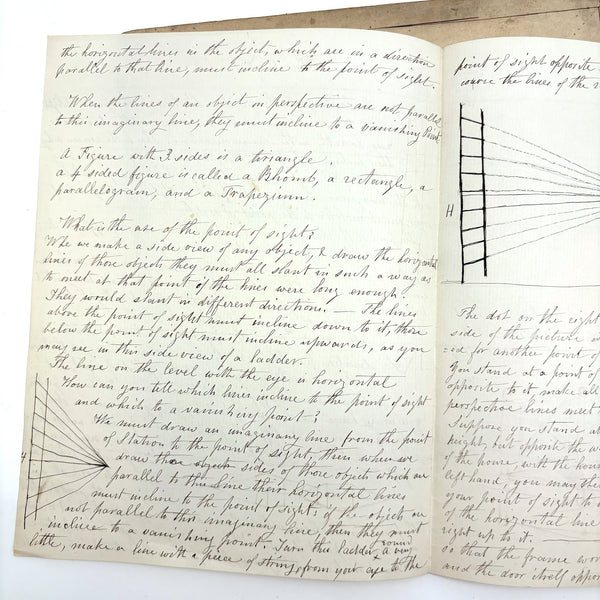 the horizontal lines in the object, which are in a direction
parallel to that line, must incline to the point of sight.
When the lines of an object in perspective are not parallel
to this imaginary line, they must incline to a vanishing Point
A Figure with 3 sides is a triangle.
a 4 sided figure is called a Rhomb, a rectangle, a
parallelogram, and a Trapezium.
What is the use of the point of sight?
Whe we make a side view of any object, & draw the horizontal
lines of those objects they must all slant in such a way as
to meet at that point if the lines were long enough?
They would slant in different directions. — The lines
above the point of sight must incline down to it; those
below the point of sight must incline upwards, as you
may see in this side view of a ladder.
The line on the level with the eye is horizontal
How can you tell which lines incline to the point of sight
and which to a vanishing point?
We must draw an imaginary line from the point
of Station to the point of sight, then when we
draw the sides of those objects which are
parallel to the line their horizontal lines
must incline to the point of sight, if the objects are
not parallel to this imaginary line, then they must
incline to a vanishing point. Turn this ladder round a very
little, make a line with a piece of string, from your eye to the
point of sight opposite
course the lines of the
H
The dot on the right
side of the picture is
=ed for another point of
You stand at a point of
opposite to it, make all
perspective lines meet
Suppose you stand at
height, but opposite the w
of the house, with the house
left hand, you may then
your point of sight to
of the horizontal line
right up to it. —
so that the frame wor
and the door itself oppos